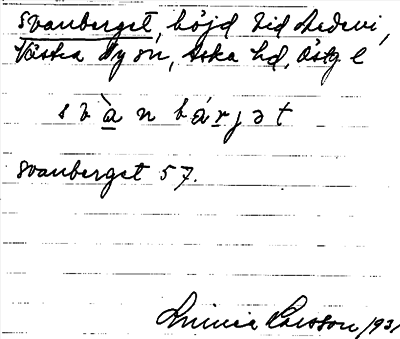 Svanberget, höjd vid Medevi,
Västra Ny sn, Aska hd, Östg l
s v à n b á r j ə t
Svanberget 57.
Linnéa Larsson 1931